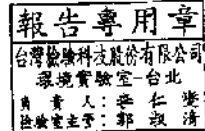 報告專用章
台灣檢驗科技股份有限公司
環境實驗室-台北
負責人:
檢驗室主管:郭淑清